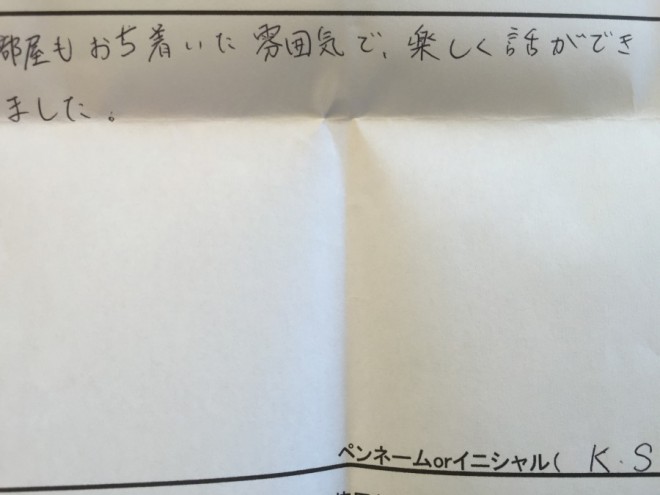 部屋もおち着いた雰囲気で、楽しく話ができ
ました。
ペンネームorイニシャル( K.S